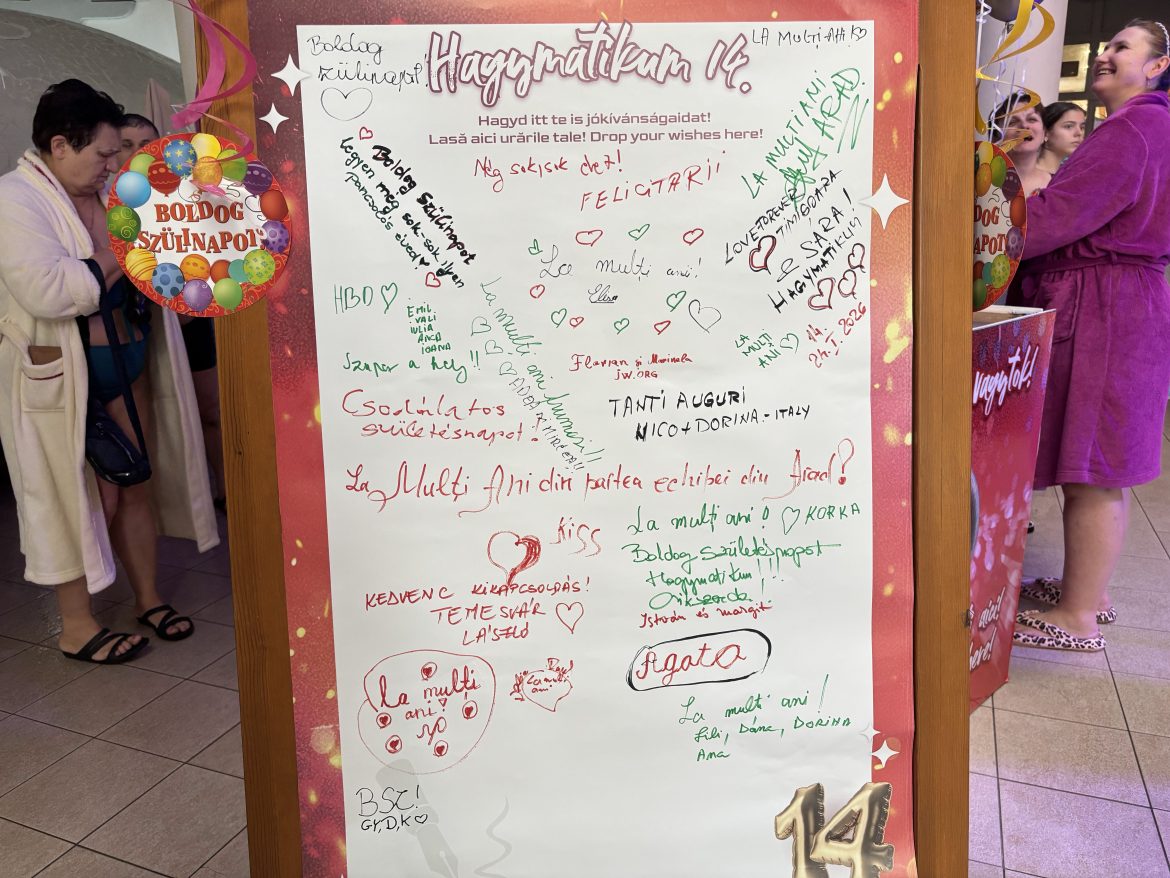 Boldog
szülinapot!
Hagymatikum 14.
LA MULȚI ANI
Hagyd itt te is jókívánságaidat!
Lasă aici urările tale! Drop your wishes here!
Még sok sok évet!
FELICITARII
LA MULTI ANI
ARAD.
Boldog Szülinapot
legyen még sok-sok ilyen
pancsolós éved!
BOLDOG
SZÜLINAPOT
LOVE FOREVER
TIMIȘOARA
SARA!
HAGYMATIKUM
La mulți ani!
HBD
EMIL
VALI
IULIA
ANCA
IOANA
La multi ani
frumosi!!
LA
MULTI
ANI
24.I.2026
Szuper a hely!!
Florian și Marinela
JW.ORG
Csodálatos
születésnapot!
TANTI AUGURI
NICO + DORINA - ITALY
La Mulți Ani din partea echipei din Arad!
KISS
La mulți ani! KORKA
Boldog Születésnapot
Hagymatikum!!!
István és margit
KEDVENC KIKAPCSOLDÁS!
TEMESVÁR
LÁSZLÓ
Agata
La mulți
ani!
La multi
ani
La multi ani!
Lili, Dana, DORINA
Ana
BSZ!
GY, D, K
14
OLDOG
vagytok!
aici!
here!